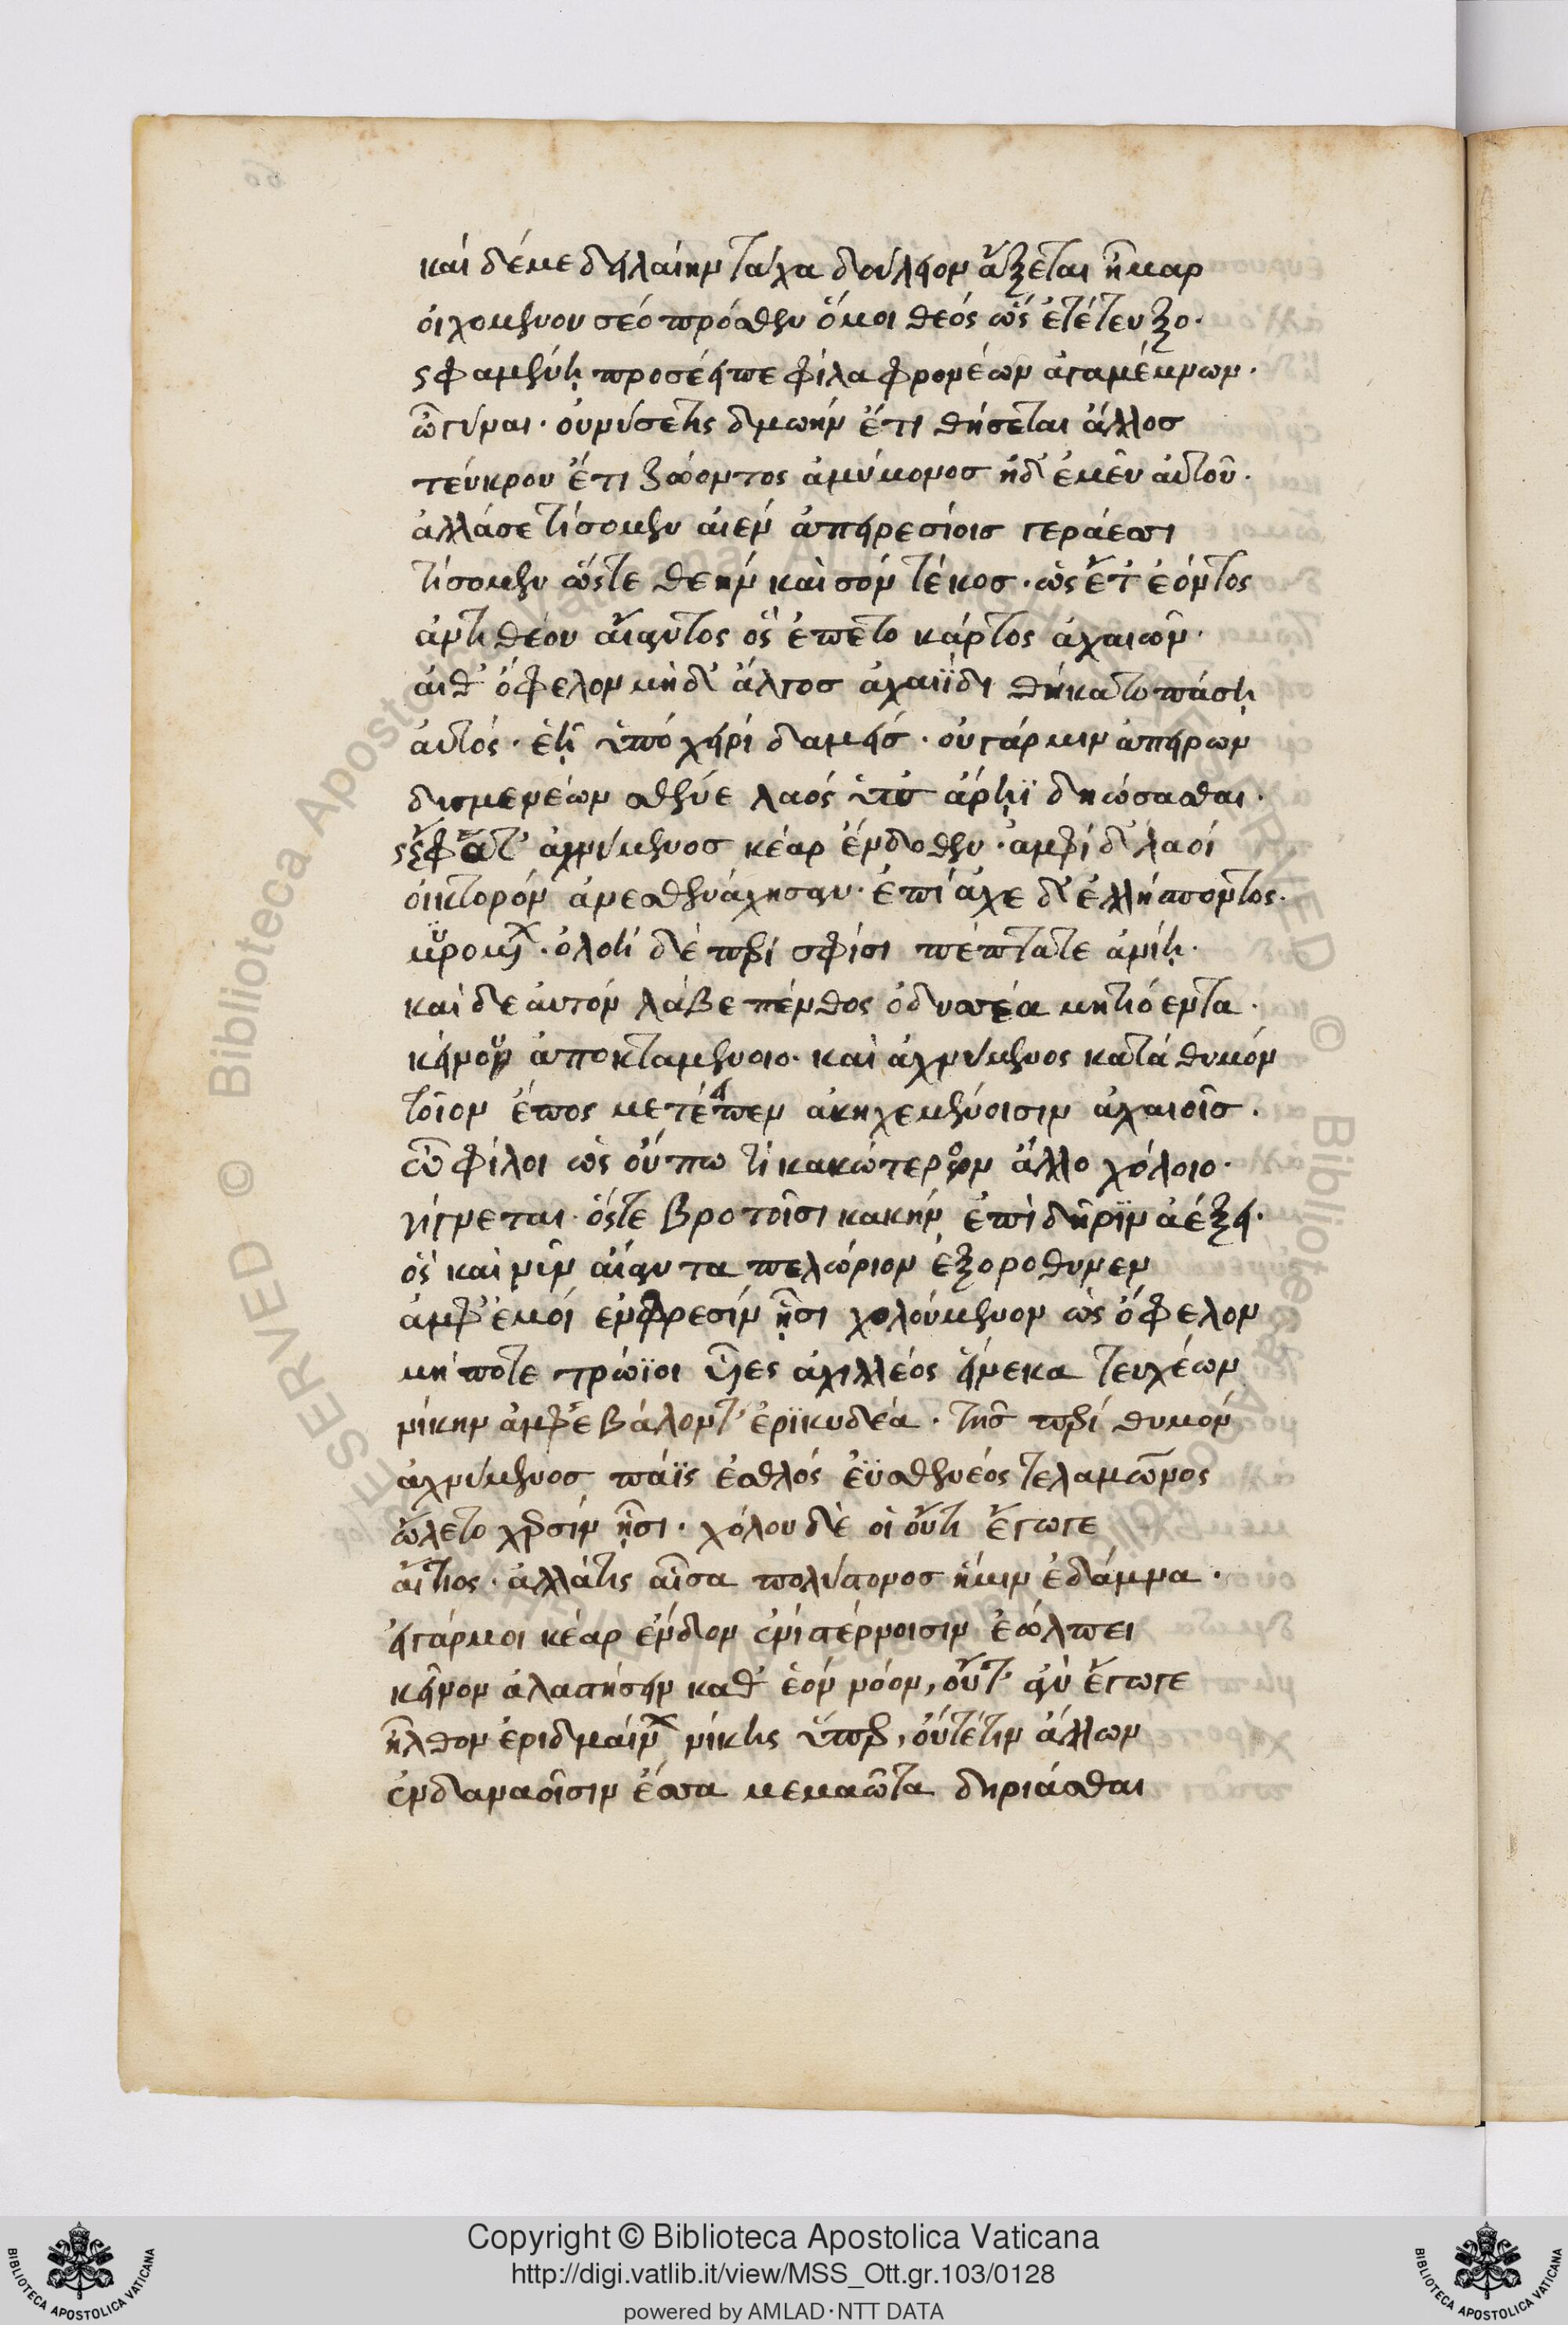 καί δέ με δειλαίην τάχα δούλιον ἄξεται ἦμαρ
οἰχομένου σέο πρόσθεν ὅ μοι θεός ὣς ἐτέτευξο·
ς φαμένῃ προσέειπε φίλα φρονέων ἀγαμέμνων·
ὦ γύναι· οὐ νύ σέ τις δμωήν ἔτι θήσεται ἄλλος
τεύκρου ἔτι ζώοντος ἀμύμονος ἠδ' ἐμεῦ αὐτοῦ·
ἀλλά σε τίσομεν αἰέν ἀπειρεσίοις γεράεσσι
τίσομεν ὥς τε θεήν καὶ σόν τέκος· ὡς ἔτ' ἐόντος
ἀντιθέου αἴαντος ὃς ἔπετο κάρτος ἀχαιῶν·
αἴθ' ὄφελον μηδ' ἄλγος ἀχαιΐδι θήκατο πάσῃ
αὐτός· ἑῇ ὑπό χειρί δαμείς· οὐ γάρ μιν ἀπείρων
δυσμενέων σθένε λαός ὑπ' ἄρηϊ δηώσασθαι·
ς ἔφατ' ἀχνύμενος κέαρ ἔνδοθεν· ἀμφί δὲ λαοί
οἰκτορόν ἀμεσθενάχησαν· ἐπίαχε δ' ἑλλήσποντος·
μυρομ· ὀλοή δὲ περί σφίσι πέπτατε ἀνίη·
καὶ δε αὐτόν λάβε πένθος ὀδυσσέα μητιόεντα·
κείνου ἀποκταμένοιο· καὶ ἀχνύμενος κατά θυμόν
τοῖον ἔπος μετέειπεν ἀκηχεμένοισιν ἀχαιοῖς·
ὦ φίλοι ὡς οὔπω τί κακώτερον ἄλλο χόλοιο·
γίγνεται· ὅς τε βροτοῖσι κακήν ἐπὶ δῆρϊν ἀέξει·
ὃς καὶ νῦν αἴαντα πελώριον ἐξοροθυνεν
ἀμφ' ἐμοί ἐν φρεσίν ᾗσι χολούμενον ὡς ὄφελον
μή ποτε τρώϊοι υἷες ἀχιλλέος εἵνεκα τευχέων
νίκην ἀμφέβάλοντ' ἐρϊκυδέα· τῆς περί θυμόν
ἀχνύμενος πάϊς ἐσθλός ἐϋσθενέος τελαμῶνος
ὤλετο χερσίν ᾗσι· χόλου δὲ οἱ οὔτι ἔγωγε
αἴτιος· ἀλλά τις αἶσα πολύστονος ἥμιν ἐδάμνα·
εἰ γάρ μοι κέαρ ἔνδον ἐνί στέρνοισιν ἐώλπει
κεῖνον ἀλαστήσειν καθ' ἑόν νόον, οὔτ' ἂν ἔγωγε
ἦλθον ἐριδμαίν νίκης ὕπερ, οὔτέ τιν ἄλλων
ἐν δαναοῖσιν ἔασα μεμαῶτα δηριάασθαι
Copyright © Biblioteca Apostolica Vaticana
http://digi.vatlib.it/view/MSS_Ott.gr.103/0128
powered by AMLAD·NTT DATA